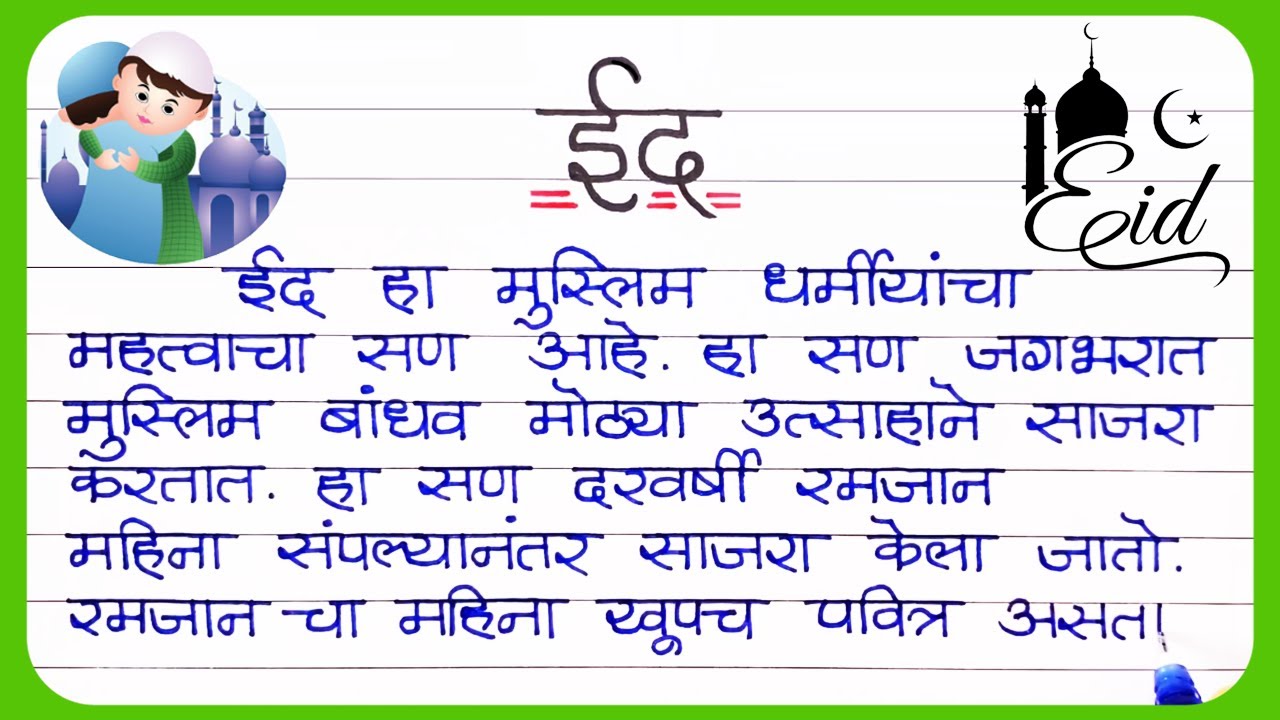 ईद
Eid
ईद हा मुस्लिम धर्मीयांचा
महत्वाचा सण आहे. हा सण जगभरात
मुस्लिम बांधव मोठ्या उत्साहाने साजरा
करतात. हा सण दरवर्षी रमजान
महिना संपल्यानंतर साजरा केला जातो.
रमजान चा महिना खूपच पवित्र असता